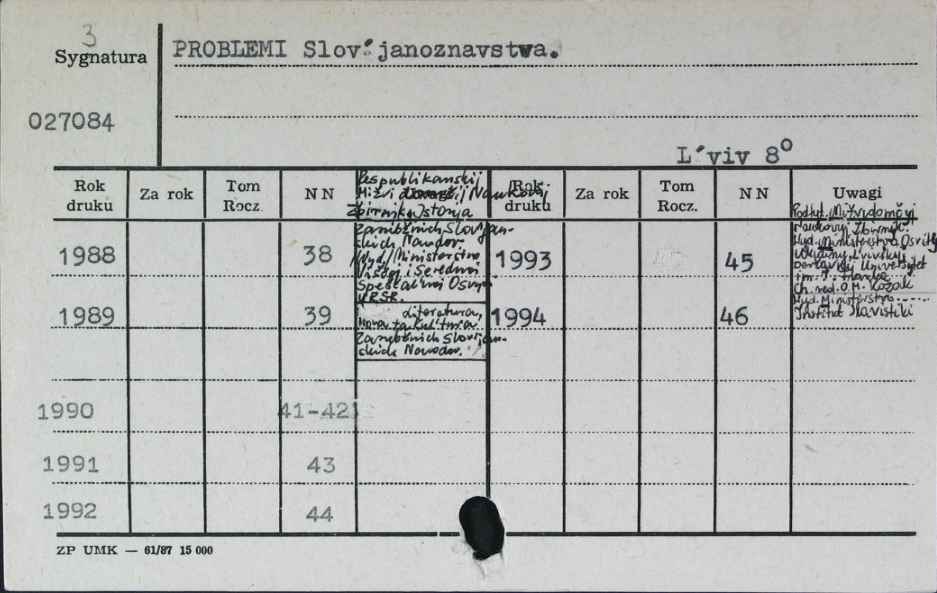 3
Sygnatura
PROBLEMI Slov´janoznavstwa.
027084
L´viv 8°
Rok druku
Za rok
Tom Rocz.
N N
Respublikanskij
Mižvi Naukovij
Zbirnik Istorija
Rok druku
Za rok
Tom Rocz.
N N
Uwagi
1988
38
Zarubižnich Slovjan-
skich Narodov.
Ministerstvo
Viščoj i Serednoi
Specialnoj Osvity
URSR.
1993
45
Podtyt. Mižvidomčyj
Naukovyj Zbirnyk.
Wyd. Ministerstvo Osvity
Ukrainy, L'vivskyj
Deržavnyj Universytet
im. I. Franka
Ch. red. O.M.
Wyd. Ministerstvo......
Institut Slavistiki
1989
39
Literatura,
Mova ta kultura
Zarubižnich Slovjan-
skich Narodov.
1994
46
1990
41-42
1991
43
1992
44
ZP UMK — 61/87 15 000